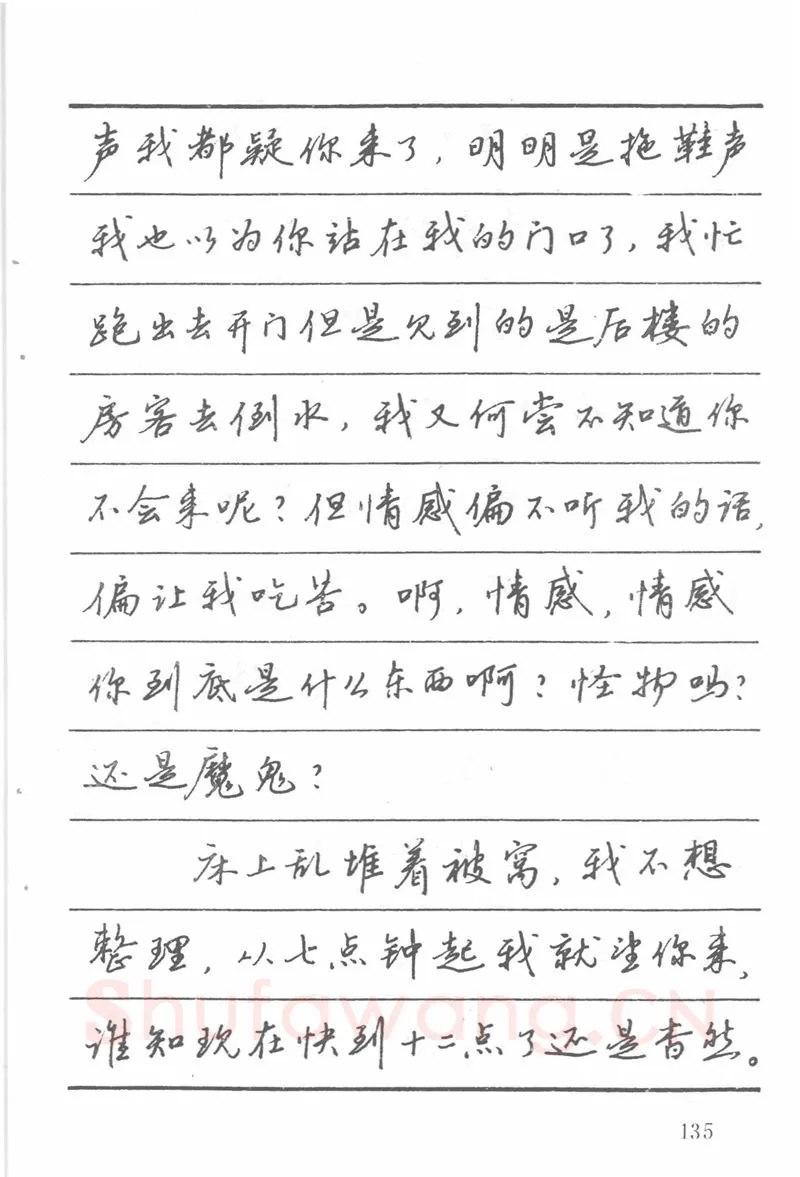 声我都疑你来了，明明是拖鞋声
我也以为你站在我的门口了，我忙
跑出去开门但是见到的是后楼的
房客去倒水，我又何尝不知道你
不会来呢？但情感偏不听我的话，
偏让我吃苦。啊，情感，情感
你到底是什么东西啊？怪物吗？
还是魔鬼？
床上乱堆着被窝，我不想
整理，从七点钟起我就望你来，
谁知现在快到十二点了还是杳然。
Shufawang.CN
135